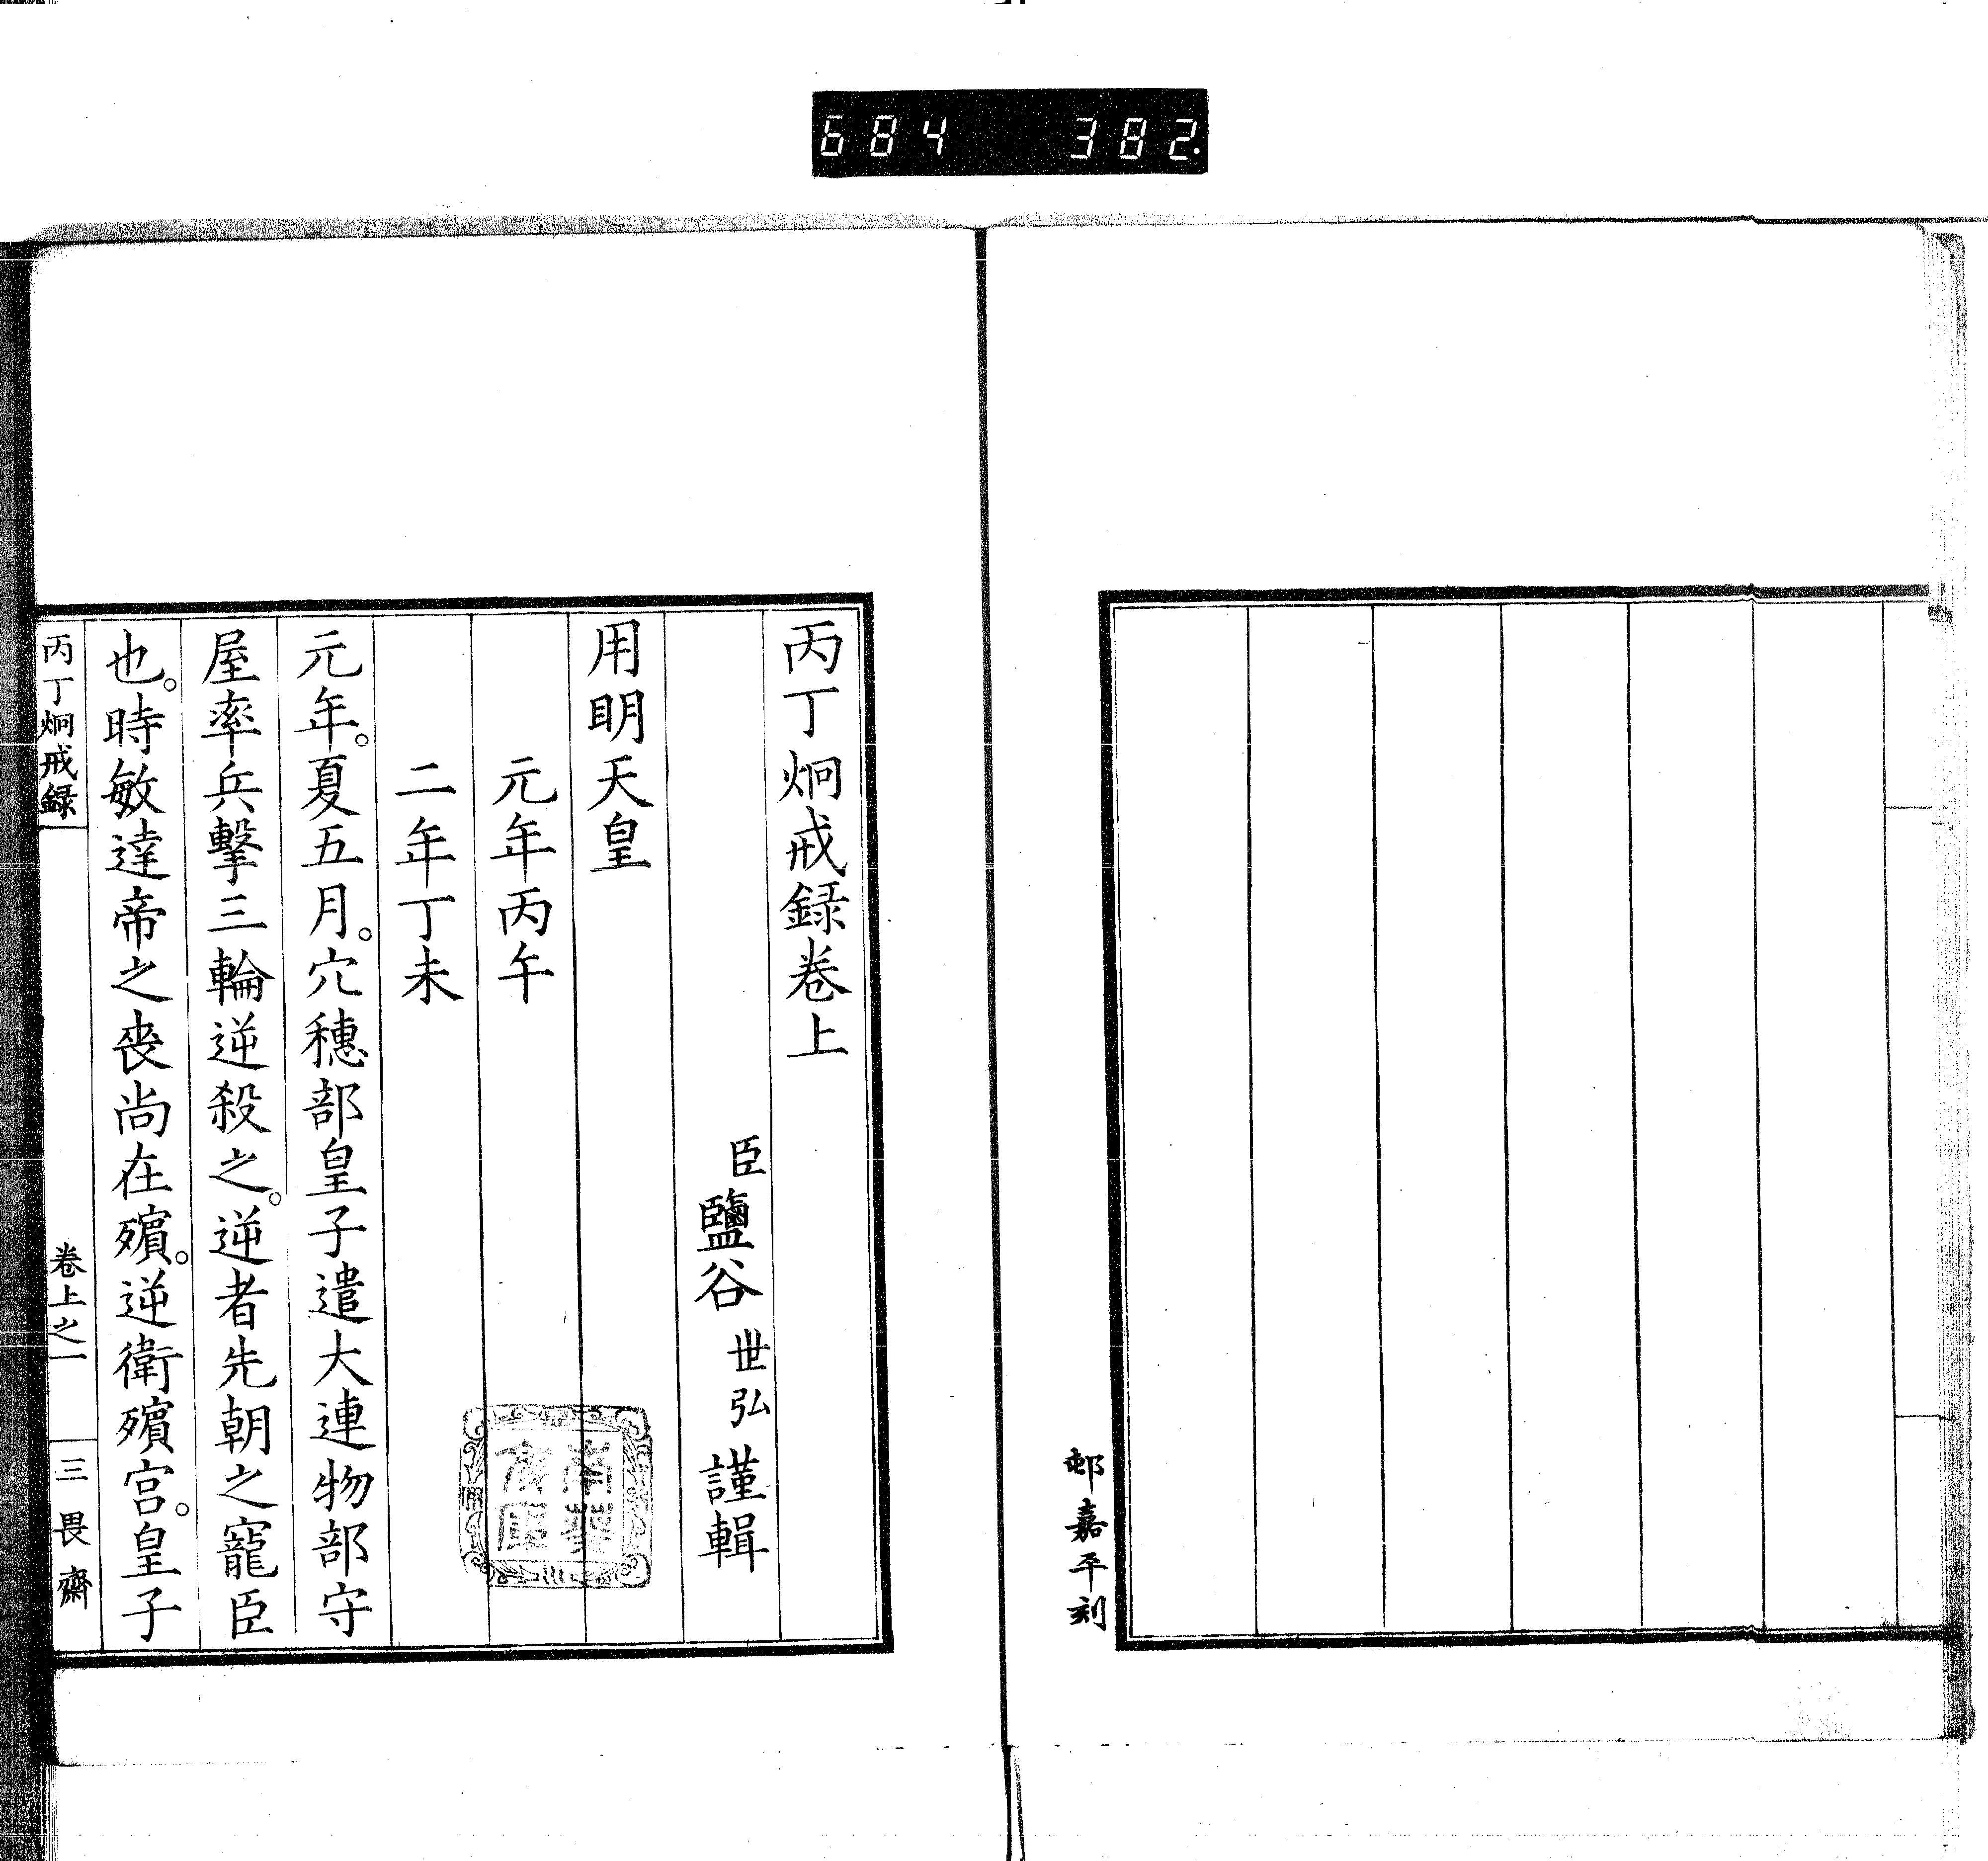 684 382
邨嘉平刻
丙丁炯戒録卷上
臣鹽谷世弘謹輯
用明天皇
元年丙午
二年丁未
元年。夏五月。穴穗部皇子遣大連物部守
屋率兵擊三輪逆殺之。逆者先朝之寵臣
也。時敏達帝之喪尚在殯。逆衛殯宮。皇子
丙丁炯戒録
卷上之一
三畏齋